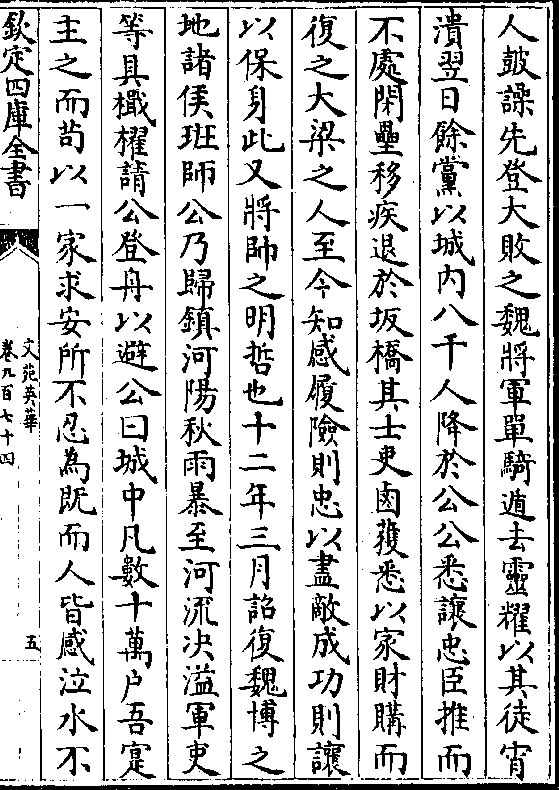 人皷譟先登大敗之魏將軍單騎遁去靈耀以其徒宵
潰翌日餘黨以城內八千人降於公公悉讓忠臣推而
不處閑壘移疾退於坂橋其士吏鹵獲悉以家財購而
復之大梁之人至今知感履險則忠以盡敵成功則讓
以保身此又將帥之明哲也十二年三月詔復魏博之
地諸侯班師公乃歸鎮河陽秋雨暴至河流决溢軍吏
等具檥櫂請公登舟以避公曰城中凡數十萬户吾寔
主之而茍以一家求安所不忍為既而人皆感泣水不
欽定四庫全書
文苑英華
卷九百七十四
五